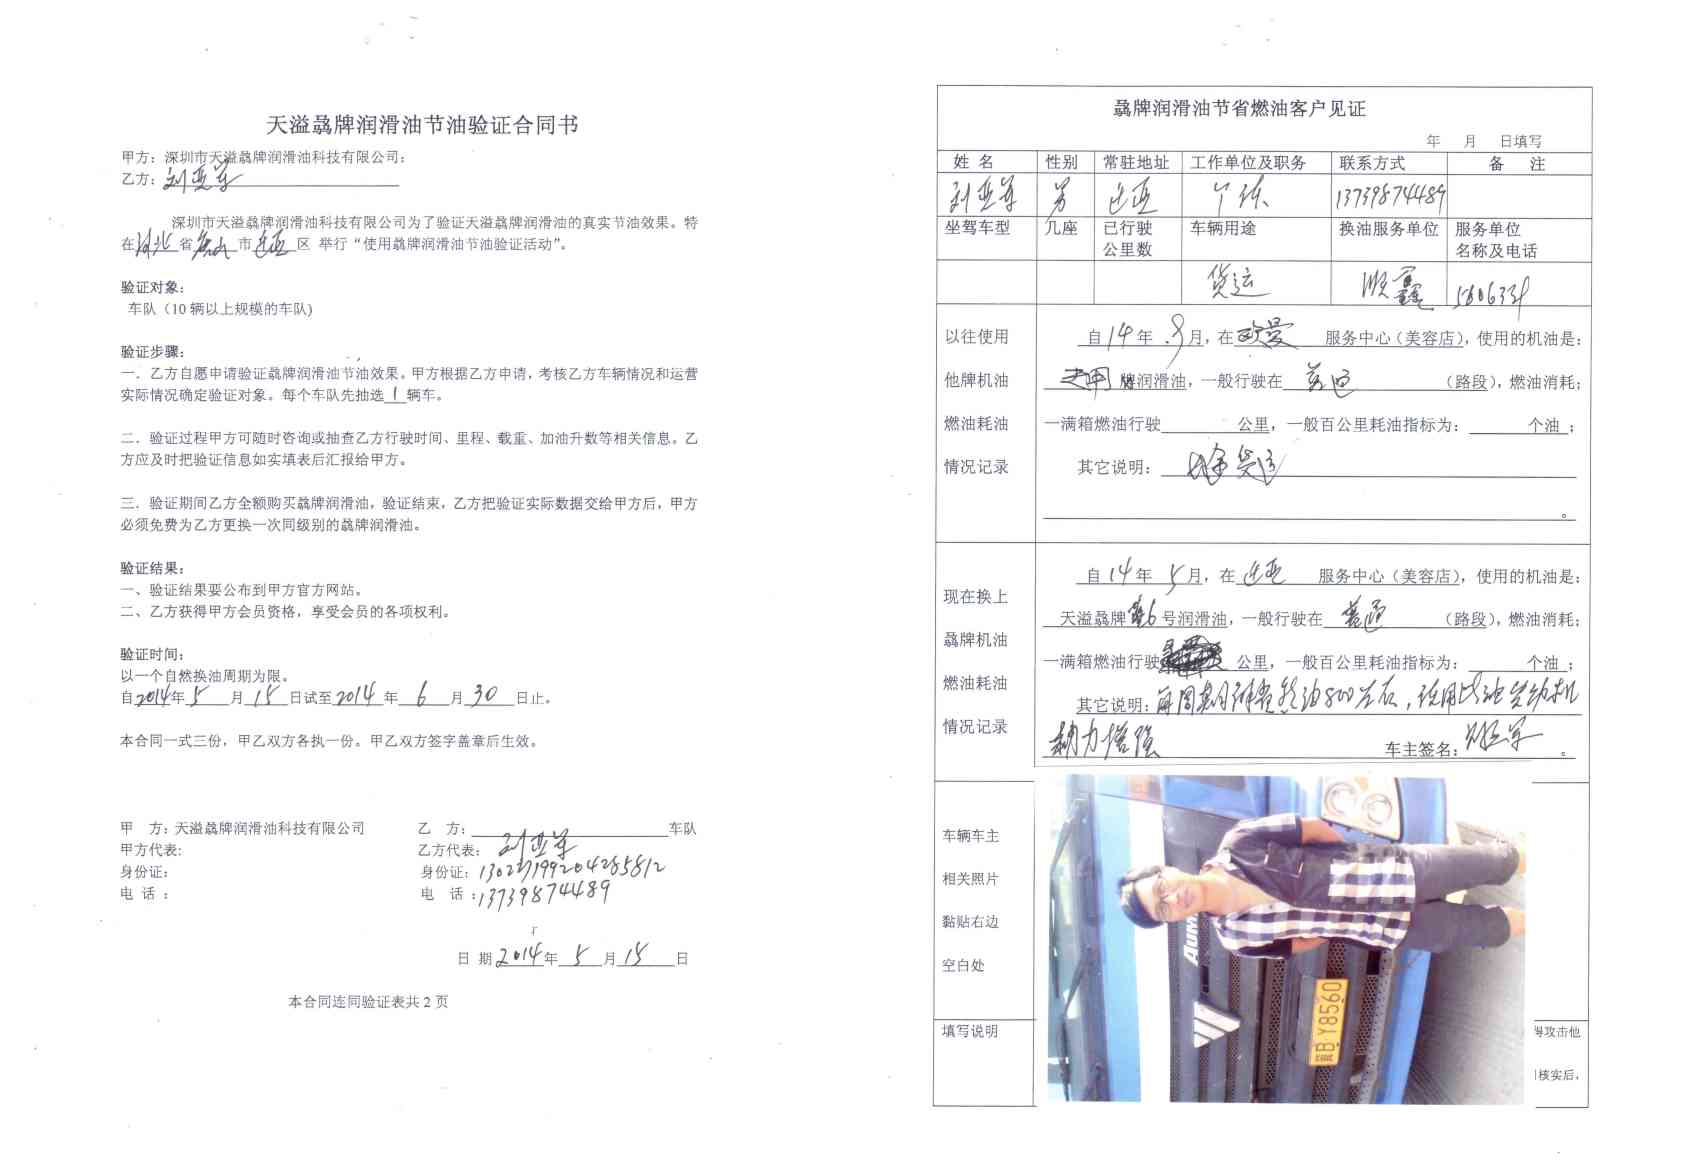 天溢骉牌润滑油节油验证合同书
甲方：深圳市天溢骉牌润滑油科技有限公司：
乙方：刘亚军
深圳市天溢骉牌润滑油科技有限公司为了验证天溢骉牌润滑油的真实节油效果。特
在河北省唐山市迁西区 举行“使用骉牌润滑油节油验证活动”。
验证对象：
车队（10 辆以上规模的车队)
验证步骤：
一．乙方自愿申请验证骉牌润滑油节油效果。甲方根据乙方申请，考核乙方车辆情况和运营
实际情况确定验证对象。每个车队先抽选 1 辆车。
二．验证过程甲方可随时咨询或抽查乙方行驶时间、里程、载重、加油升数等相关信息。乙
方应及时把验证信息如实填表后汇报给甲方。
三．验证期间乙方全额购买骉牌润滑油，验证结束，乙方把验证实际数据交给甲方后，甲方
必须免费为乙方更换一次同级别的骉牌润滑油。
验证结果：
一、验证结果要公布到甲方官方网站。
二、乙方获得甲方会员资格，享受会员的各项权利。
验证时间：
以一个自然换油周期为限。
自2014年 5 月 15 日试至2014 年 6 月 30 日止。
本合同一式三份，甲乙双方各执一份。甲乙双方签字盖章后生效。
甲 方：天溢骉牌润滑油科技有限公司 乙 方： 车队
甲方代表： 乙方代表：刘亚军
身份证： 身份证：
电 话： 电 话：13739874489
日 期 2014年 5 月 15 日
本合同连同验证表共 2 页
骉牌润滑油节省燃油客户见证
年 月 日填写
姓 名 性别 常驻地址 工作单位及职务 联系方式 备 注
刘亚军 男 迁西 13739874489
坐驾车型 几座 已行驶公里数 车辆用途 换油服务单位 服务单位名称及电话
货运 顺鑫
以往使用 他牌机油 燃油耗油 情况记录
自14年 9月，在欧曼 服务中心（美容店），使用的机油是：
牌润滑油，一般行驶在 普通 （路段），燃油消耗；
一满箱燃油行驶 公里，一般百公里耗油指标为： 个油；
其它说明： 货运
。
现在换上 骉牌机油 燃油耗油 情况记录
自14年 5月，在迁西 服务中心（美容店），使用的机油是：
天溢骉牌 6号润滑油，一般行驶在 普通 （路段），燃油消耗；
一满箱燃油行驶 公里，一般百公里耗油指标为： 个油；
其它说明： 油800左右，使用此油发动机
动力增强 车主签名：刘亚军 。
车辆车主
相关照片
黏贴右边
空白处
AUM
冀B Y8560
填写说明
得攻击他
核实后，